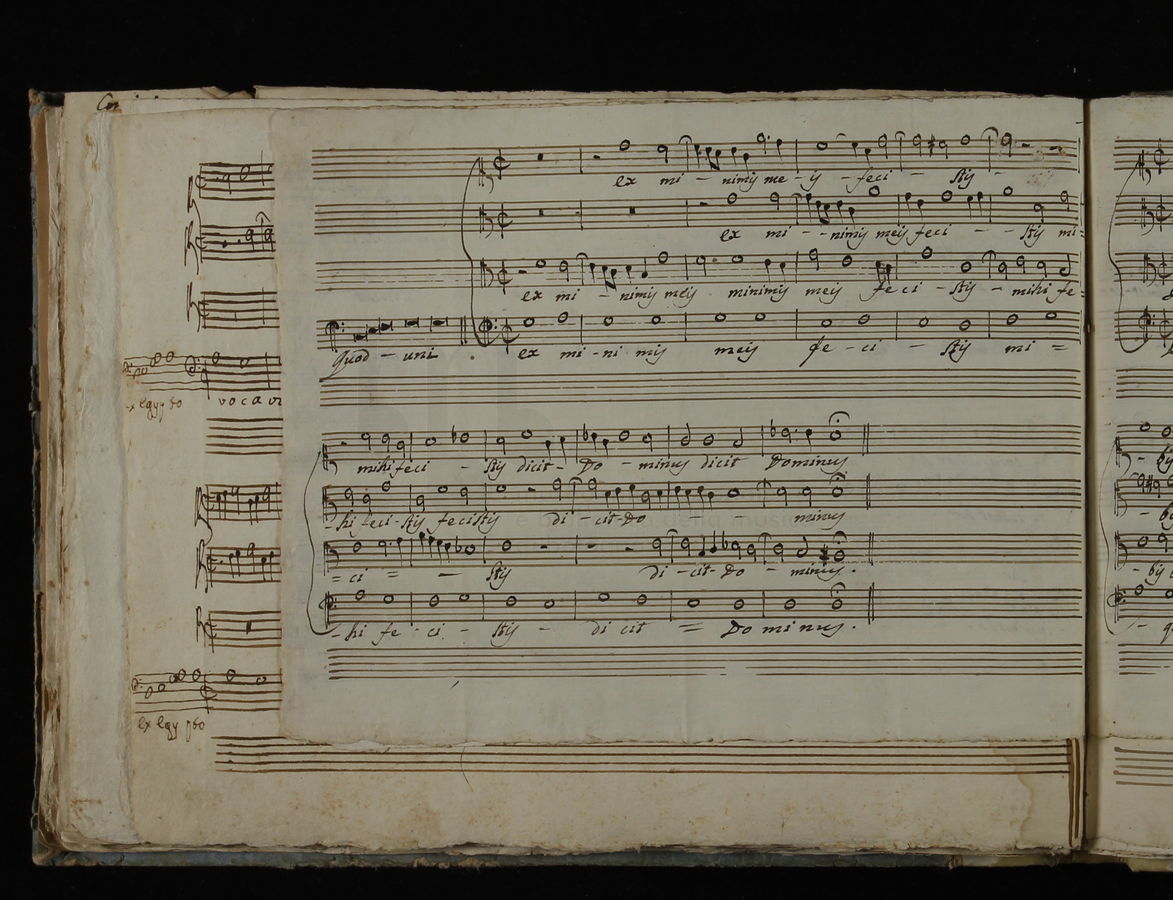 ex mi - nimij me - ij - feci - stij -
ex mi - - nimij meij feci - - stij mi =
ex mi - nimij meij minimij meij feci - stij - mihi fe =
quod - uni ex mi - ni mij meij fe - ci - stij mi =
ex egyp to vocavi
mihi feci - stij dicit - Do - minus dicit Dominus
- hi feci - stij fecistij di - cit - Do - - minus
= ci = - stij di - cit - Do - minus .
- hi fe - ci - stij - di cit = Do mi nus .
ex egy pto